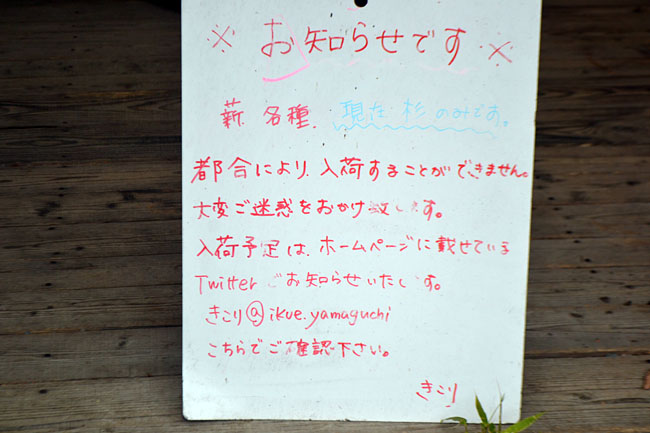 ※ お知らせです ※
薪 各種 現在 杉 のみです。
都合により、入荷することができません。
大変ご迷惑をおかけ致します。
入荷予定は、ホームページに載せている
Twitterでお知らせいたします。
きこり@ikue.yamaguchi
こちらでご確認下さい。
きこり